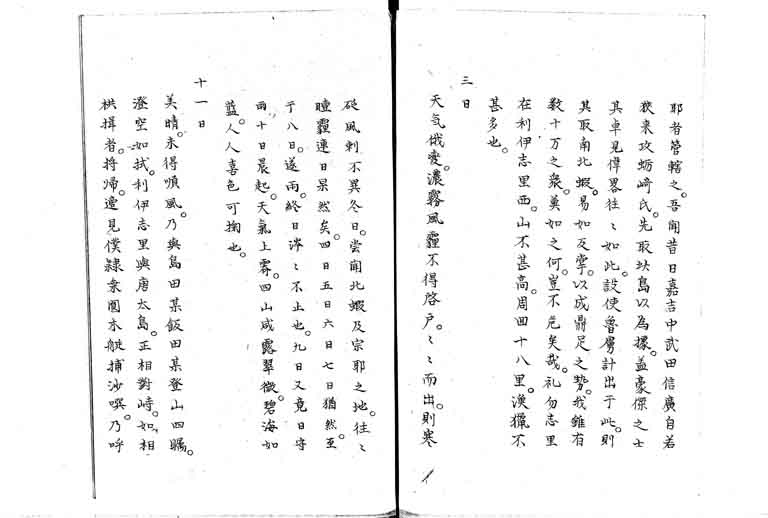 耶者管轄之。吾聞昔日嘉吉中武田信廣自若
狹来攻蛎崎氏。先取此島以為據。蓋豪傑之士
其卓見偉畧往〻如此。設使魯虜計出于此。則
其取南北蝦。易如反掌。以成鼎足之勢。我雖有
数十万之衆。莫如之何。豈不危矣哉。礼勿志里
在利伊志里西。山不甚高。周回十八里。漁獵不
甚多也。
三日
天気俄変。濃霧風霾不得啓戸。〻〻而出。則寒
砭風刺不異冬日。嘗聞北蝦及宗耶之地。往〻
曀霾連日果然矣。四日五日六日七日猶然。至
于八日。遂雨。終日滂〻不止也。九日又竟日守
雨十日晨起。天氣上霽。四山咸露翠微。碧海如
藍。人人喜色可掬也。
十一日
美晴。未得順風。乃與島田某飯田某登山四矚。
澄空如拭。利伊志里與唐太島。正相對峙。如相
拱揖者。将帰。遭見僕隷衆圍木艇捕沙噀。乃呼